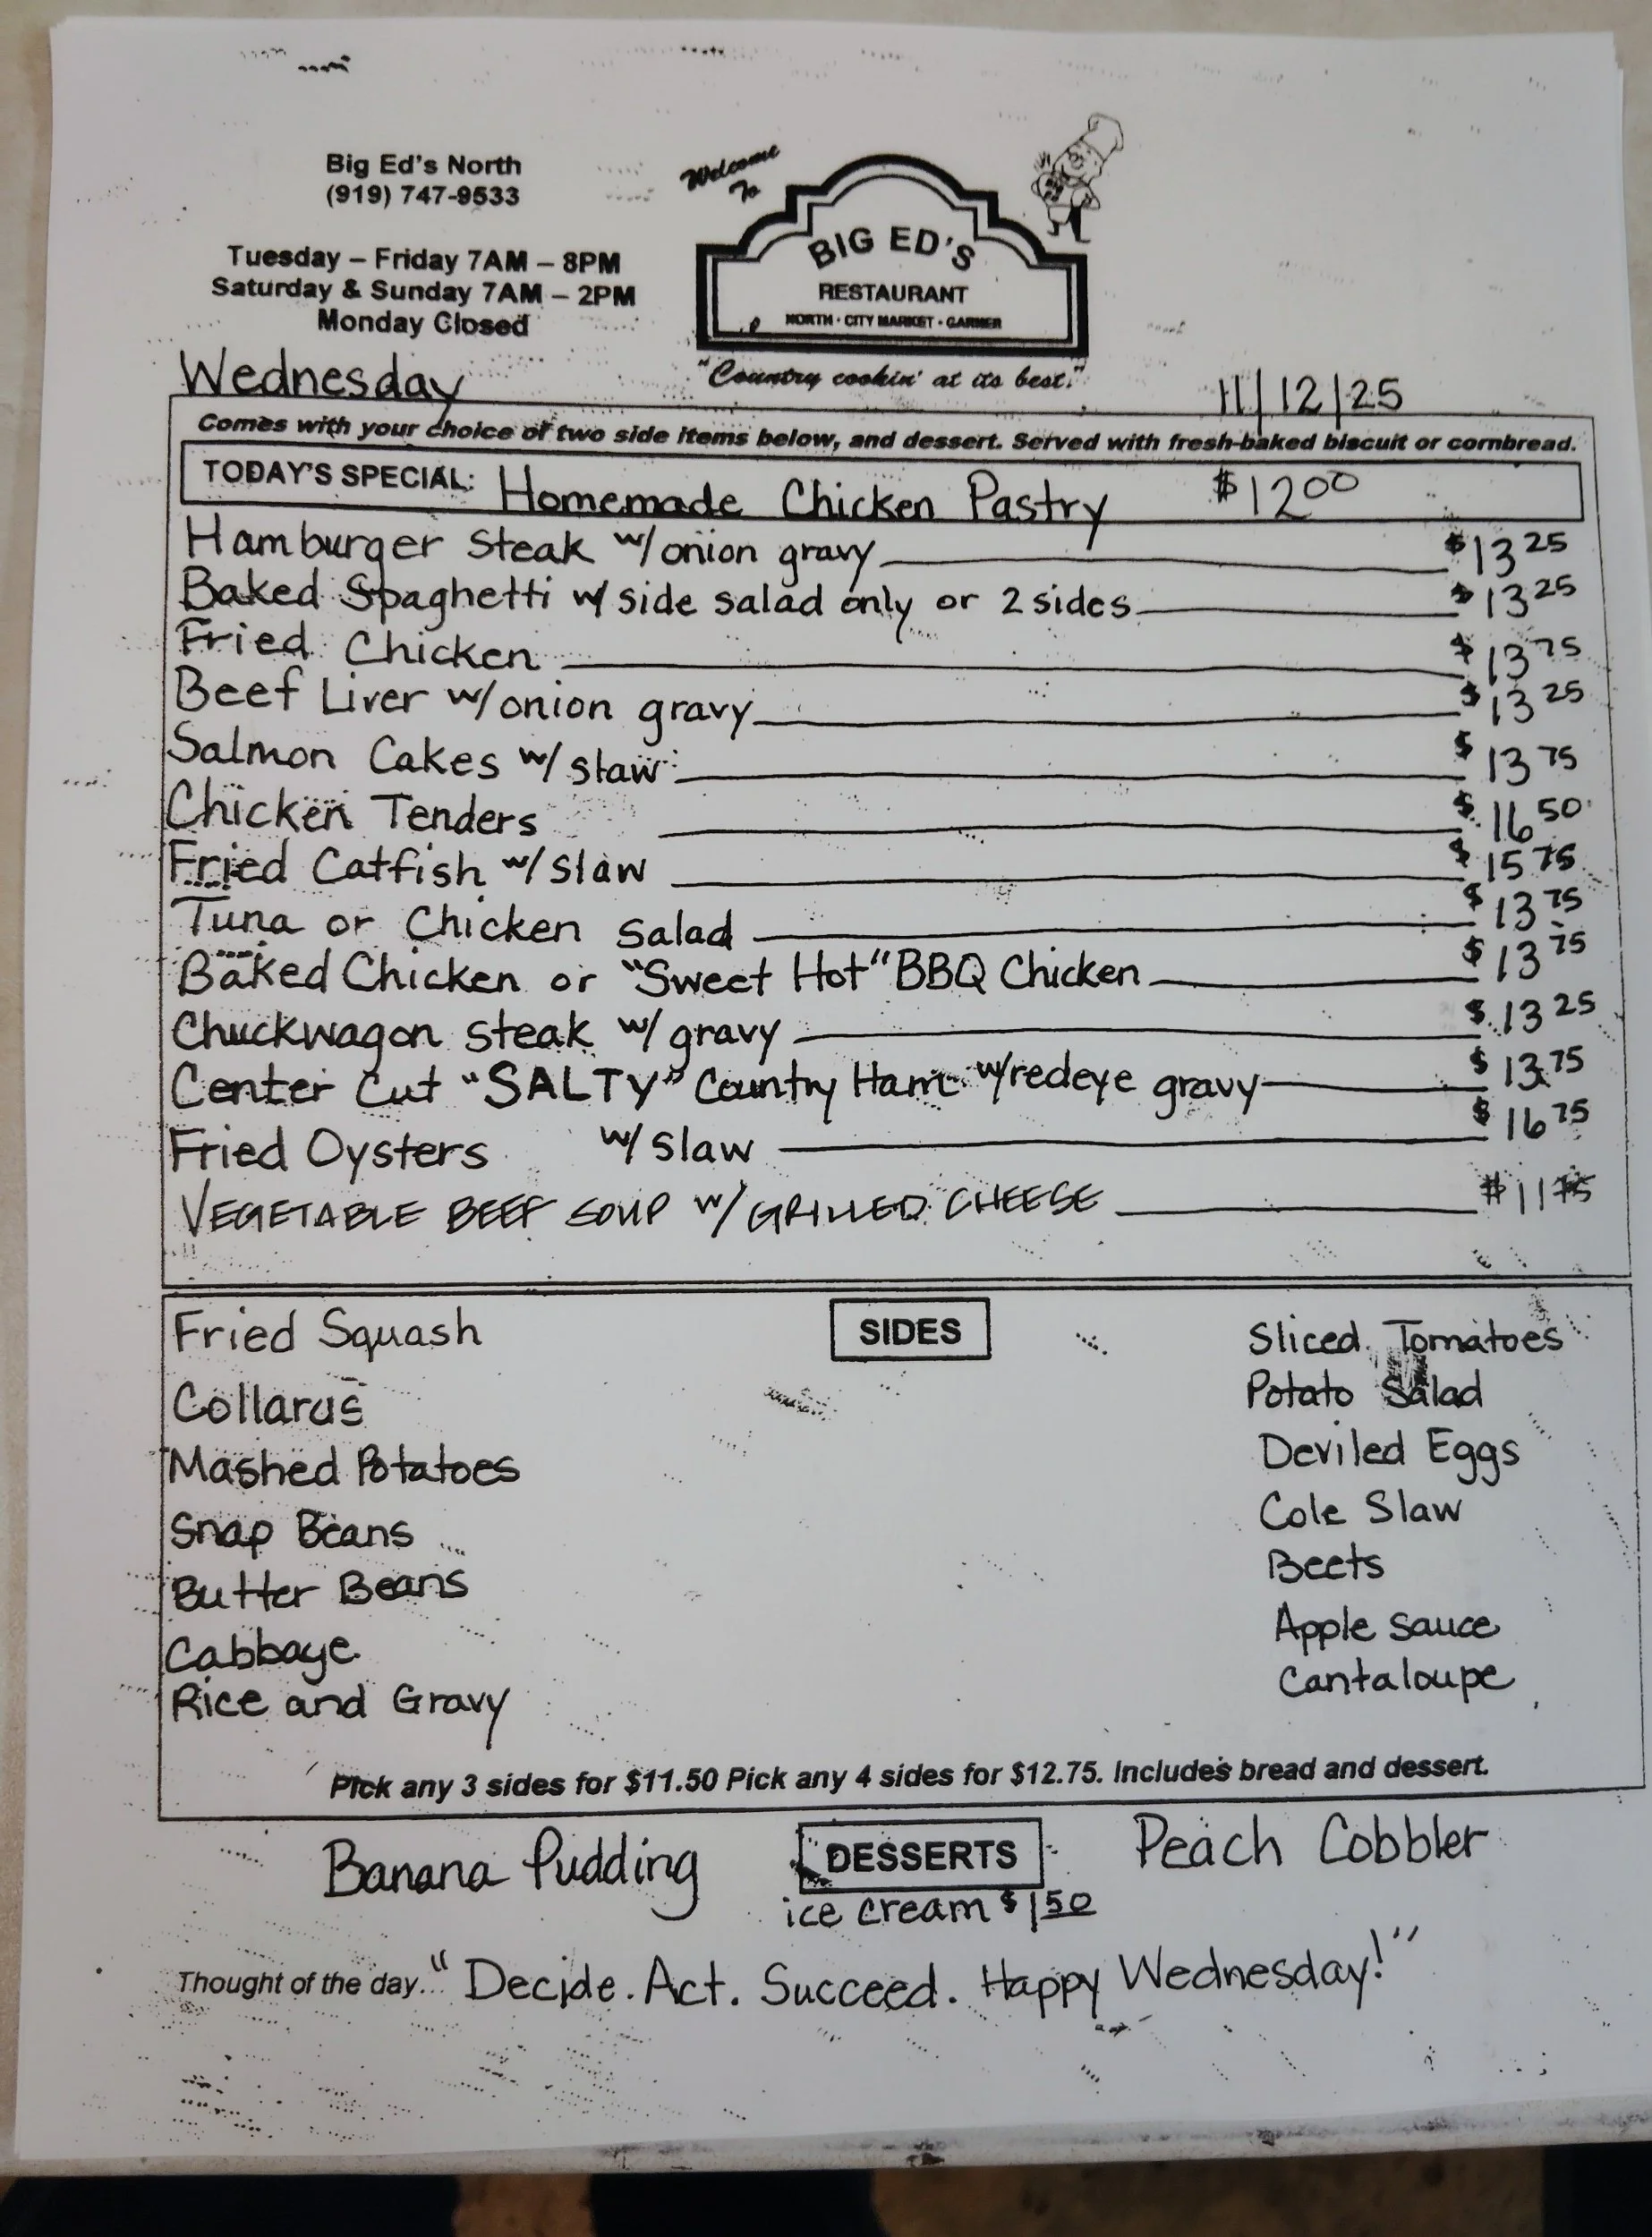 Big Ed's North
(919) 747-9533
Tuesday – Friday 7AM – 8PM
Saturday & Sunday 7AM – 2PM
Monday Closed
Welcome
To
BIG ED'S
RESTAURANT
NORTH · CITY MARKET · GARNER
"Country cookin' at its best."
Wednesday
11/12/25
Comes with your choice of two side items below, and dessert. Served with fresh-baked biscuit or cornbread.
TODAY'S SPECIAL: Homemade Chicken Pastry $12.00
Hamburger Steak w/onion gravy $13.25
Baked Spaghetti w/ side salad only or 2 sides $13.25
Fried Chicken $13.75
Beef Liver w/onion gravy $13.25
Salmon Cakes w/ slaw $13.75
Chicken Tenders $16.50
Fried Catfish w/slaw $15.75
Tuna or Chicken Salad $13.75
Baked Chicken or "Sweet Hot" BBQ Chicken $13.75
Chuckwagon steak w/ gravy $13.25
Center Cut "SALTY" Country Ham w/redeye gravy $13.75
Fried Oysters w/ slaw $16.75
VEGETABLE BEEF SOUP W/ GRILLED CHEESE $11.75
SIDES
Fried Squash
Collards
Mashed Potatoes
Snap Beans
Butter Beans
Cabbage
Rice and Gravy
Sliced Tomatoes
Potato Salad
Deviled Eggs
Cole Slaw
Beets
Apple Sauce
Cantaloupe
Pick any 3 sides for $11.50 Pick any 4 sides for $12.75. Includes bread and dessert.
DESSERTS
Banana Pudding
Peach Cobbler
ice cream $1.50
Thought of the day..." Decide. Act. Succeed. Happy Wednesday!"